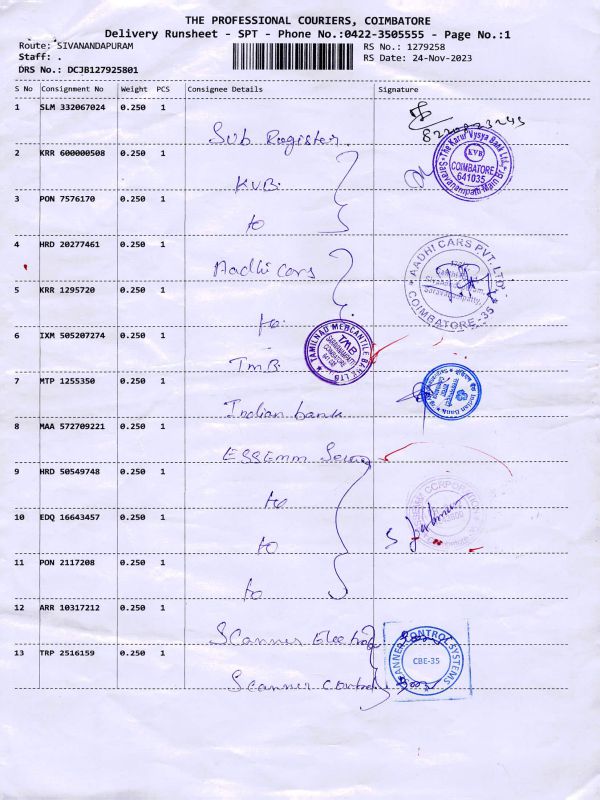 THE PROFESSIONAL COURIERS, COIMBATORE
Delivery Runsheet - SPT - Phone No.:0422-3505555 - Page No.:1
Route: SIVANANDAPURAM
RS No.: 1279258
Staff: .
RS Date: 24-Nov-2023
DRS No.: DCJB127925801
S No Consignment No Weight PCS Consignee Details Signature
1 SLM 332067024 0.250 1 Sub Register
2 KRR 600000508 0.250 1 KVB
The Karur Vysya Bank Ltd.
KVB
COIMBATORE
641035
Saravanampatti Main Br.
3 PON 7576170 0.250 1 to
4 HRD 20277461 0.250 1 Aadhi Cars
AADHI CARS PVT. LTD
COIMBATORE - 35
5 KRR 1295720 0.250 1 to
6 IXM 505207274 0.250 1 TMB
TAMILNAD MERCANTILE BANK LTD.
TMB
7 MTP 1255350 0.250 1 Indian bank
Indian Bank
8 MAA 572709221 0.250 1 ESSEMM
9 HRD 50549748 0.250 1 to
CORPORATION
10 EDQ 16643457 0.250 1 to
11 PON 2117208 0.250 1 to
12 ARR 10317212 0.250 1 Scanner Electro
13 TRP 2516159 0.250 1 Scanner Control
SCANNER CONTROL SYSTEMS
CBE-35